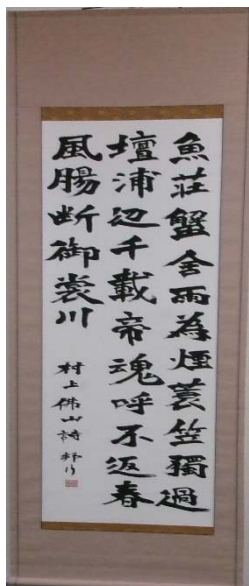 魚荘蟹舎雨為煙蓑笠獨過
壇浦辺千載帝魂呼不返春
風腸断御裳川
村上佛山詩